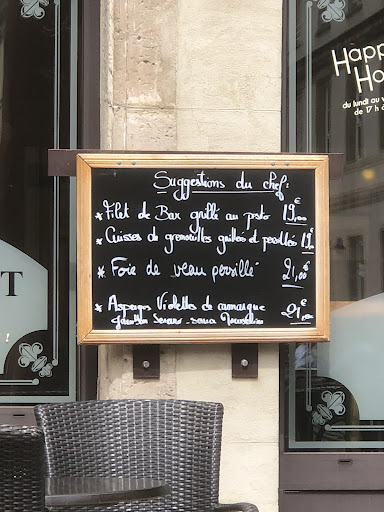 Happ
Ho
du lundi au v
de 17h à
T
Suggestions du chef :
* Filet de Bar grillé au pesto 19,00€
* Cuisses de grenouilles grillées et persillées 19€
* Foie de veau persillé 21,00€
* Asperges Violettes de camargue
Jambon Serrano - sauce Mousseline 21,00€